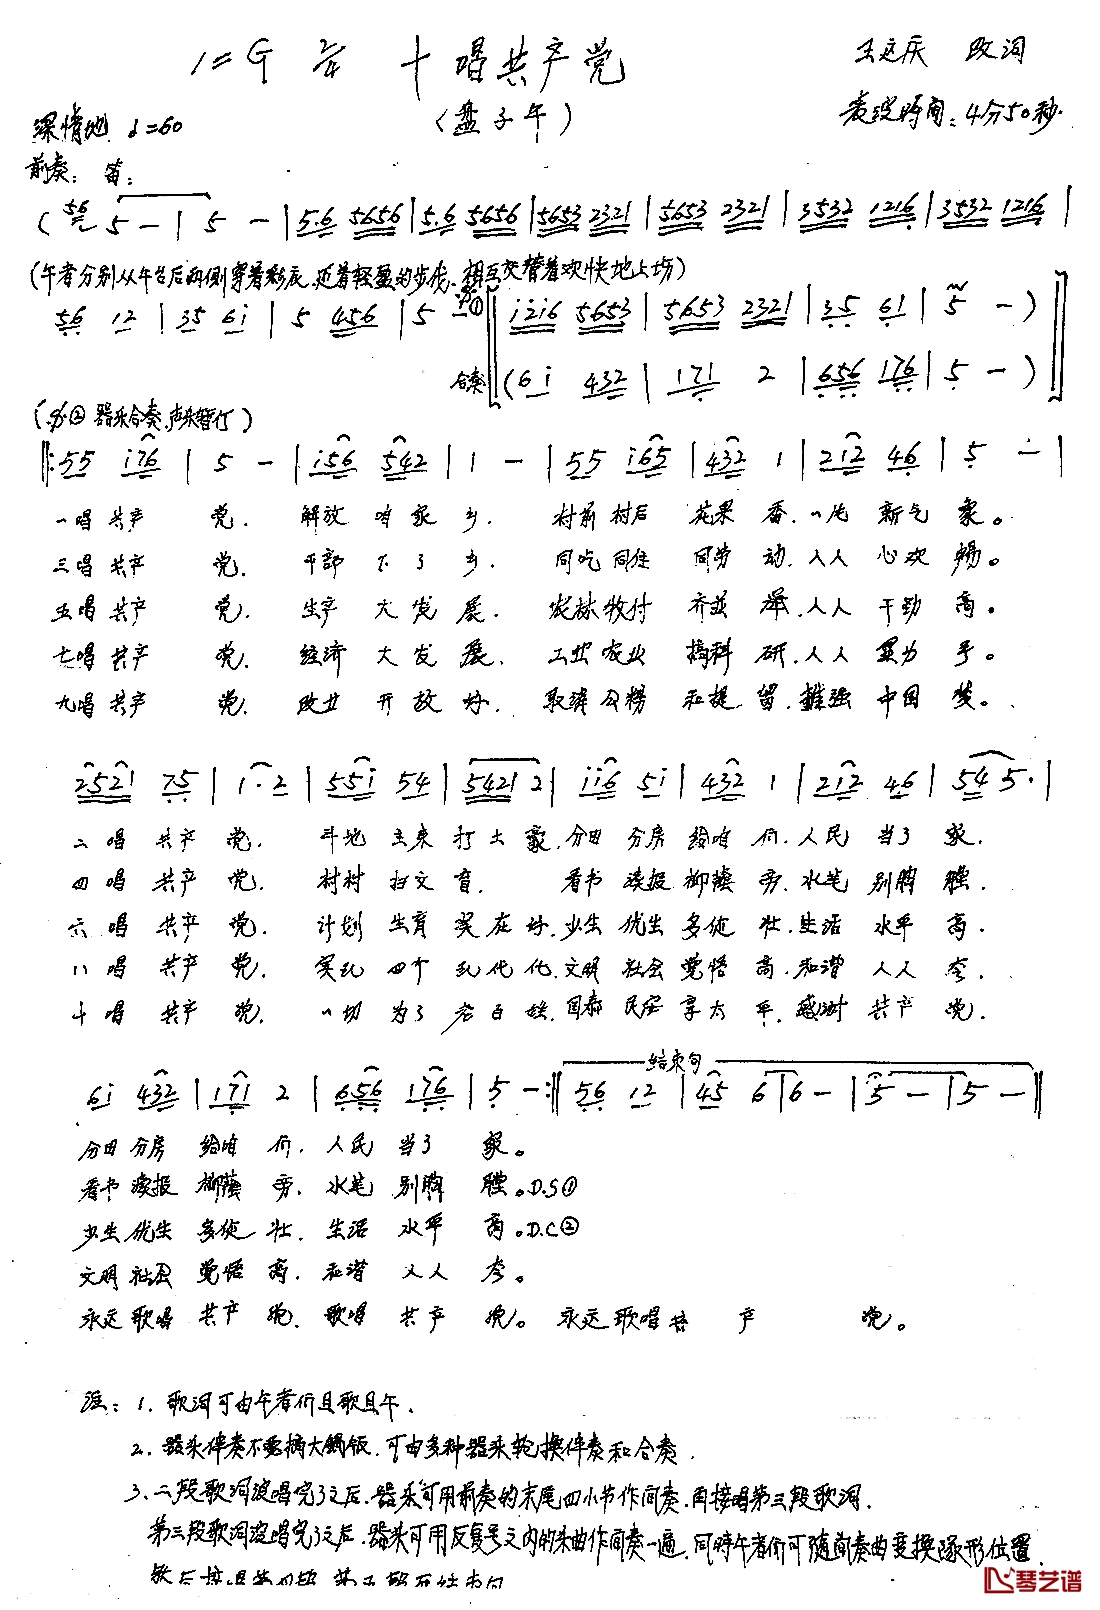 1=G 2/4 十唱共产党 王这庆 改词
(盘子午) 表演时间:4分50秒.
深情地 ♩=60
前奏: 笛:
(56 5 - | 5 - | 5.6 5656 | 5.6 5656 | 5653 2321 | 5653 2321 | 3532 1216 | 3532 1216 |
(午者分别从午台后两侧穿着彩衣.迈着轻盈的步伐.相互交替着欢快地上场)
56 12 | 35 6i | 5 456 | 5 ① i2i6 5653 | 5653 2321 | 35 61 | 5 - )
合奏 (6i 432 | 171 2 | 656 176 | 5 - )
(② 器乐合奏.声乐暂行)
‖: 55 i76 | 5 - | i56 542 | 1 - | 55 i65 | 432 1 | 212 46 | 5 - |
一唱共产 党. 解放咱家乡. 村前村后 花果香.一片新气象。
三唱共产 党. 干部下了乡. 同吃同住 同劳动.人人心欢畅。
五唱共产 党. 生产大发展. 农林牧付 齐并举.人人干劲高。
七唱共产 党. 经济大发展. 工业农业 搞科研.人人显力手。
九唱共产 党. 改廿开放好. 取消公粮 和提留.推强中国梦。
2521 75 | 1. 2 | 55i 54 | 5421 2 | ii6 5i | 432 1 | 212 46 | 54 5. |
二唱共产党. 斗地主来打土豪.分田分房给咱们.人民当了家.
四唱共产党. 村村扫文盲. 看书读报柳荫旁.水笔别胸膛.
六唱共产党. 计划生育实在好.少生优生多健壮.生活水平高.
八唱共产党. 实现四个现代化.文明社会觉悟高.和谐人人夸.
十唱共产党. 一切为了老百姓.国泰民安享太平.感谢共产党.
结束句
6i 432 | 171 2 | 656 176 | 5 - :‖ 56 12 | 45 6 | 6 - | 5 - | 5 - ‖
分田分房给咱们.人民当了家。
看书读报柳荫旁.水笔别胸膛。D.S①
少生优生多健壮.生活水平高。D.C②
文明社会觉悟高.和谐人人夸。
永远歌唱共产党.歌唱共产党。永远歌唱共产党。
注: 1. 歌词可由午者们且歌且午.
2. 器乐伴奏不要搞大锅饭.可由多种器乐轮换伴奏和合奏.
3. 二段歌词演唱完了之后.器乐可用前奏的末尾四小节作间奏.再接唱第三段歌词.
第三段歌词演唱完了之后.器乐可用反复号之内的乐曲作间奏一遍.同时午者们可随间奏曲变换队形位置.
琴艺谱